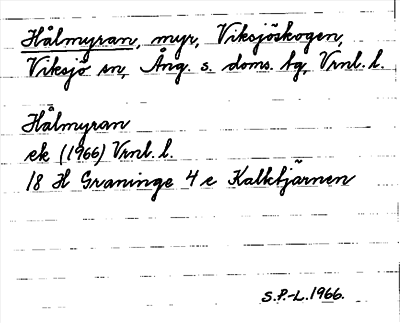 Hålmyran, myr, Viksjöskogen,
Viksjö sn, Ång. s. doms. tg, Vrnl. l.
Hålmyran
ek (1966) Vrnl. l.
18 H Graninge 4 e Kalktjärnen
S.P.-L. 1966.